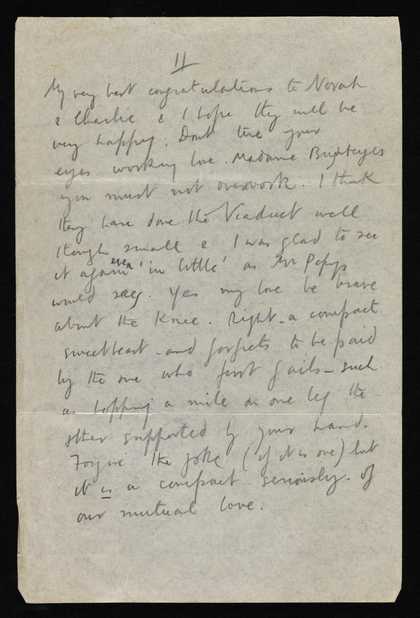 11
My very best congratulations to Norah
& Charlie & I hope they will be
very happy. Dont tire your
eyes working love. Madame
you must not overwork. I think
they have done the Viaduct well
though small & I was glad to see
it again even 'in little' as Mr Pepys
would say. Yes my love be brave
about the Knee. Right - a compact
sweetheart - and forfeits to be paid
by the one who first fails - such
as hopping a mile on one leg the
other supported by your hand.
Forgive the joke (if it is one) but
it is a compact seriously - of
our mutual love.